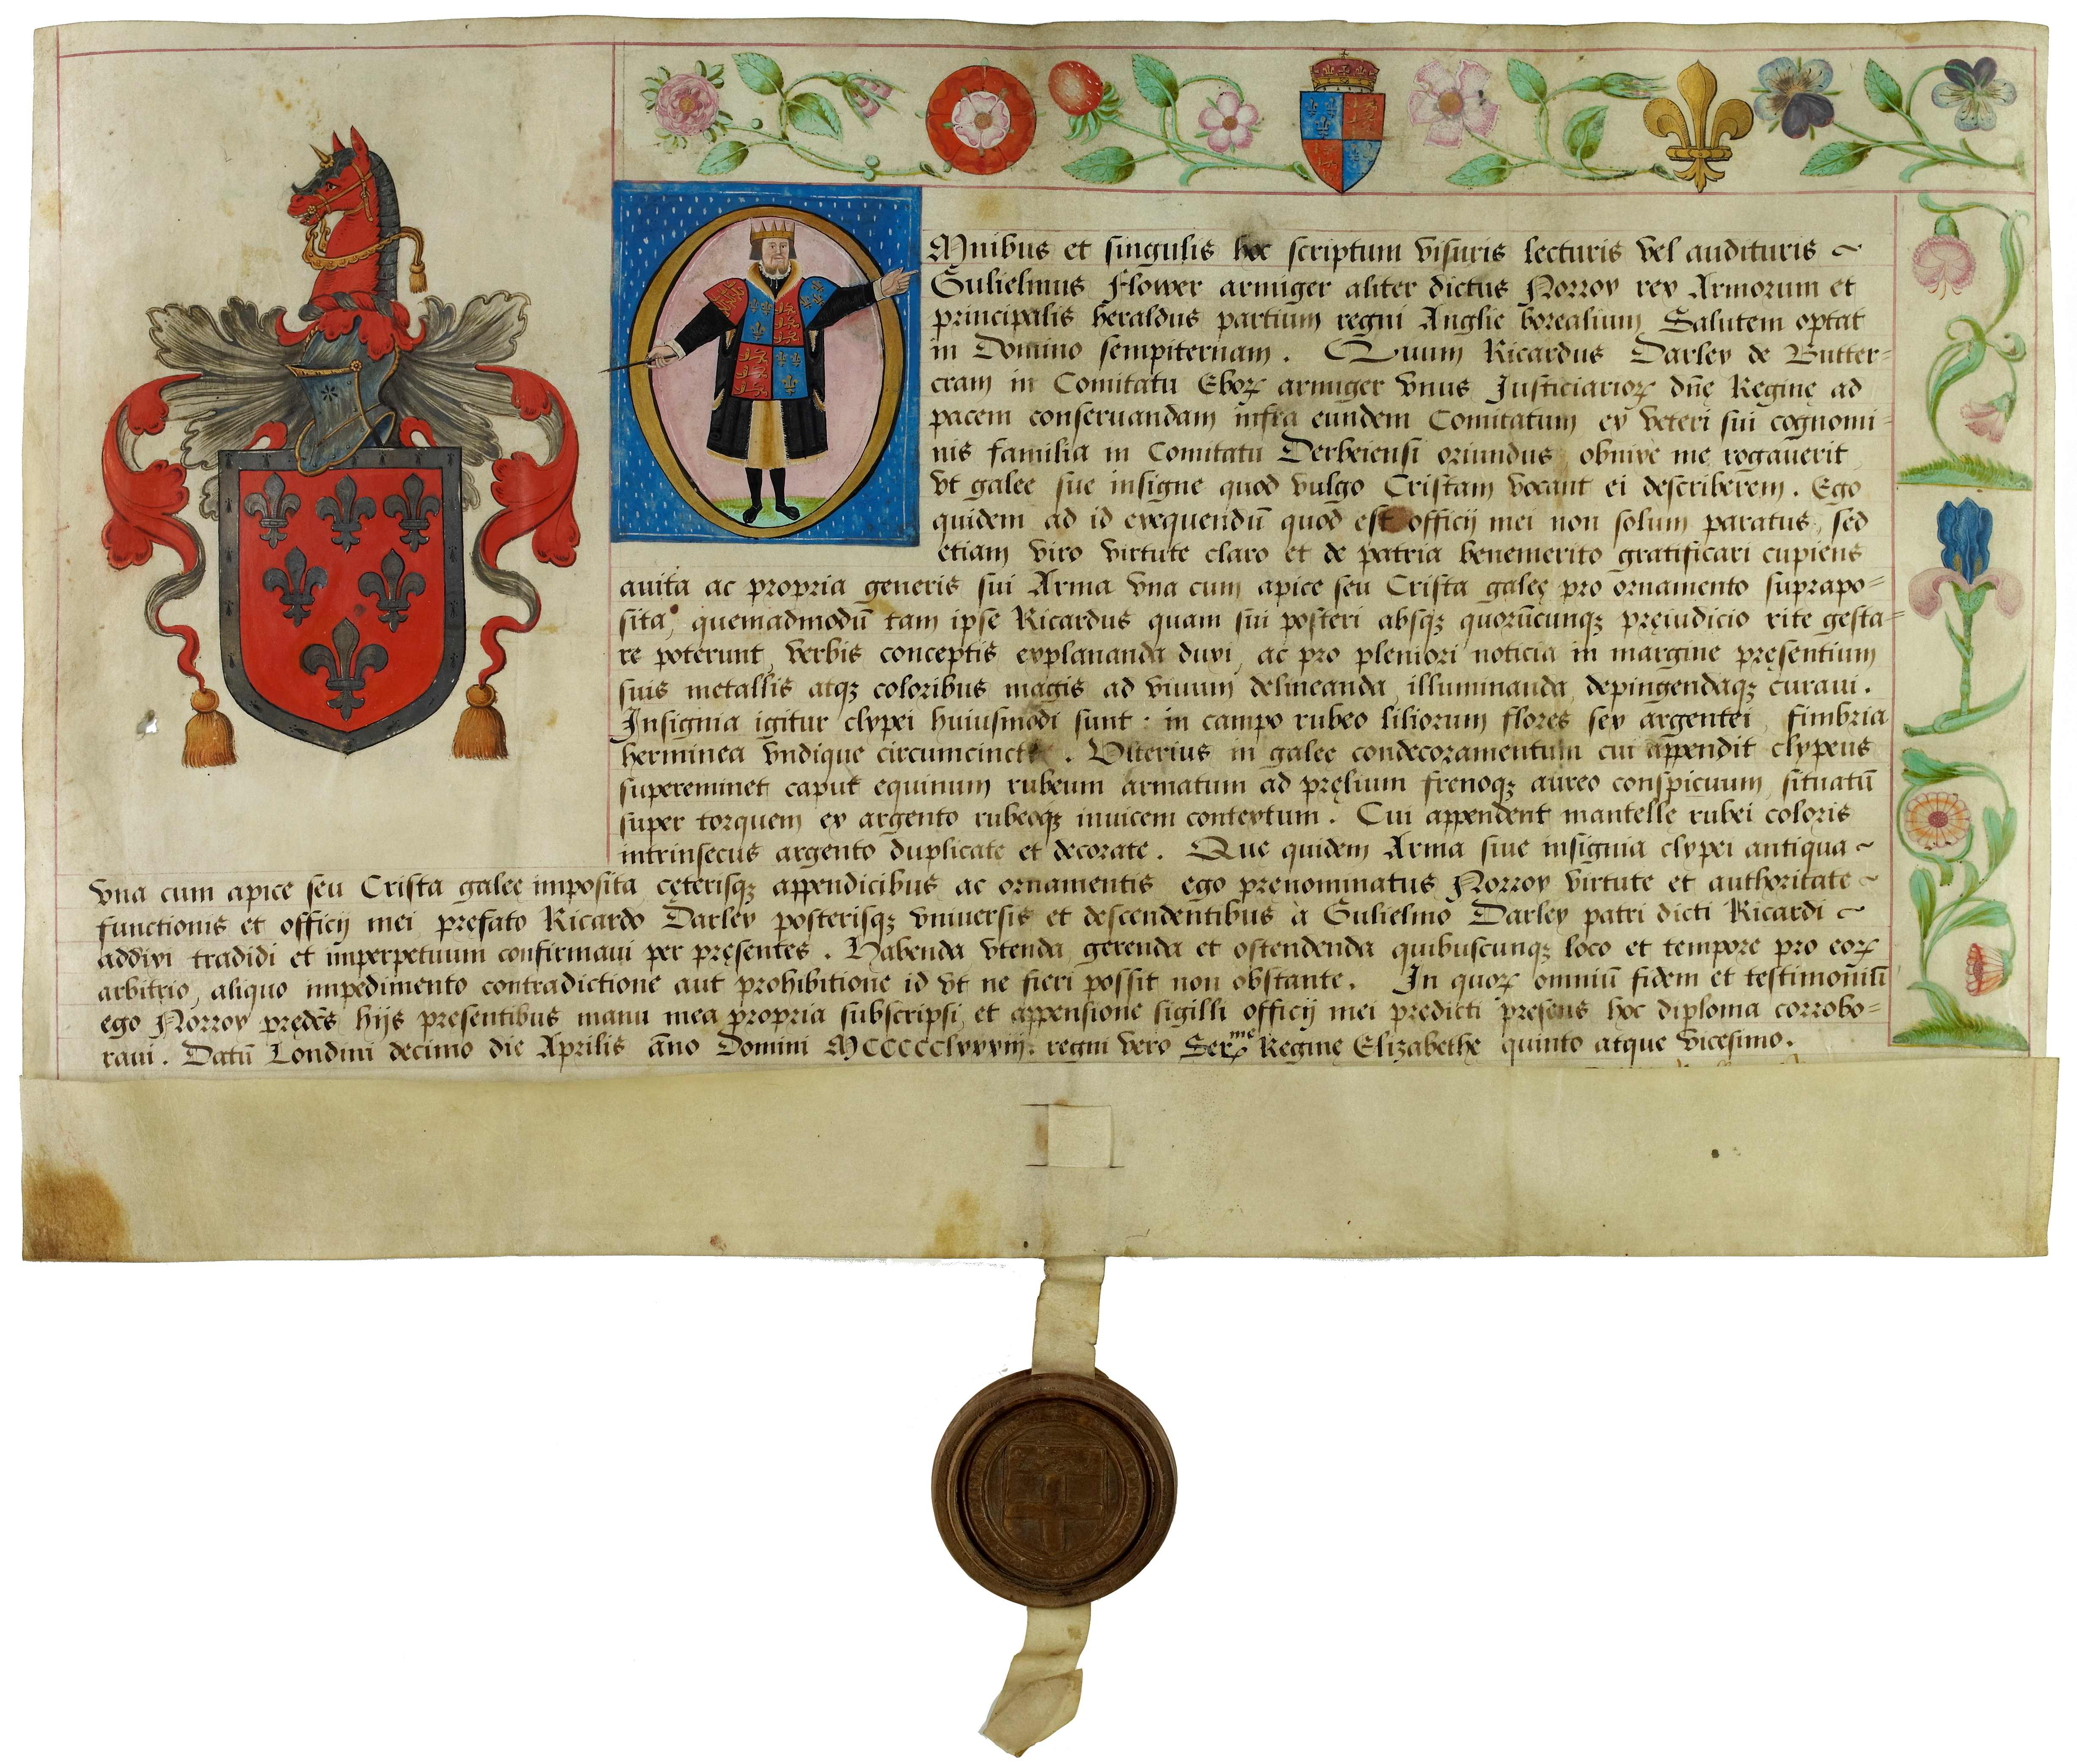 Omnibus et singulis hoc scriptum visuris lecturis vel audituris ~
Gulielmus Flower armiger aliter dictus Norroy rex Armorum et
principalis heraldus partium regni Anglie borealium Salutem optat
in Domino sempiternam. Quum Ricardus Darley de Butter=
cram in Comitatu Eborꝝ armiger vnus Justiciarioꝝ dn̄ę Reginę ad
pacem conseruandam infra eundem Comitatum ex veteri sui cognomi=
nis familia in Comitatu Derbeiensi oriundus, obnixè me rogauerit
vt galee sue insigne quod vulgo Cristam vocant ei describerem. Ego
quidem ad id exequendū quod est officij mei non solum paratus, sed
etiam viro virtute claro et de patria benemerito gratificari cupiens
auita ac propria generis sui Arma vna cum apice seu Crista galeę pro ornamento suprapo=
sita, quemadmodū tam ipse Ricardus quam sui posteri absqꝫ quorūcunqꝫ pręiudicio rite gesta=
re poterunt, verbis conceptis explananda duxi, ac pro pleniori noticia in margine pręsentium
suis metallis atqꝫ coloribus magis ad viuum delineanda, illuminanda, depingendaqꝫ curaui.
Insignia igitur clypei huiusmodi sunt: in campo rubeo liliorum flores sex argentei, fimbria
herminea vndique circumcincte. Vlterius in galee condecoramentum cui appendit clypeus
supereminet caput equinum rubeum armatum ad pręlium frenoqꝫ aureo conspicuum, situatū
super torquem ex argento rubeoqꝫ inuicem contextum. Cui appendent mantellę rubei coloris
intrinsecus argento duplicate et decorate. Que quidem Arma siue insignia clypei antiqua ~
vna cum apice seu Crista galeę imposita, cęterisqꝫ appendicibus ac ornamentis, ego prenominatus Norroy virtute et authoritate ~
functionis et officij mei prefato Ricardo Darley posterisqꝫ vniuersis et descendentibus à Gulielmo Darley patri dicti Ricardi ~
addixi tradidi et imperpetuum confirmaui per pręsentes. Habenda vtenda, gerenda et ostendenda quibuscunqꝫ loco et tempore pro eoꝝ
arbitrio, aliquo impedimento contradictione aut prohibitione id vt ne fieri possit non obstante. In quoꝝ omniū fidem et testimoniū
ego Norroy prędc̄s hijs presentibus manu mea propria subscripsi, et appensione sigilli officij mei predicti presens hoc diploma corrobo=
raui. Datū Londini decimo die Aprilis āno Domini MCCCCClxxxiij. regni vero Ser.me Reginę Elizabethę quinto atque vicesimo.